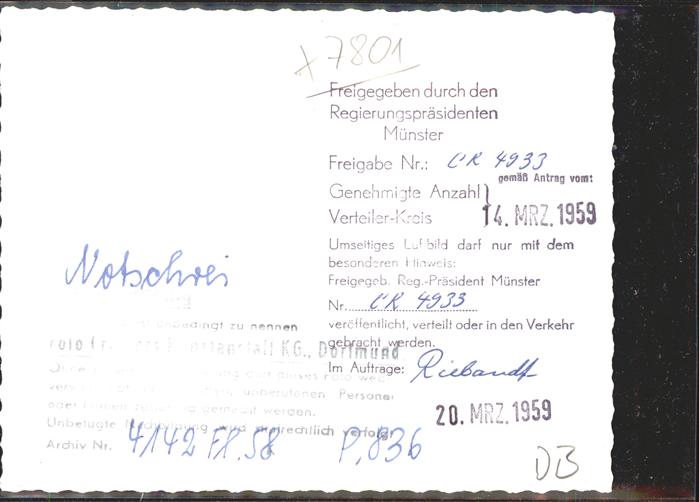 7801
Freigegeben durch den
Regierungspräsidenten
Münster
Freigabe Nr.: CR 4933
gemäß Antrag vom:
Genehmigte Anzahl }
Verteiler-Kreis 14. MRZ. 1959
Umseitiges Luftbild darf nur mit dem
besonderen Hinweis:
Freigegeb. Reg.-Präsident Münster
Nr. CR 4933
veröffentlicht, verteilt oder in den Verkehr
gebracht werden.
Im Auftrage:
20. MRZ. 1959
Notschrei
unbedingt zu nennen
Foto Kunstanstalt KG., Dortmund
Ohne dieses Foto
unberufenen Personen
oder gemacht werden.
Unbefugte wird strafrechtlich verfolgt
Archiv Nr. 4142 Fr. 58 P. 836
DB